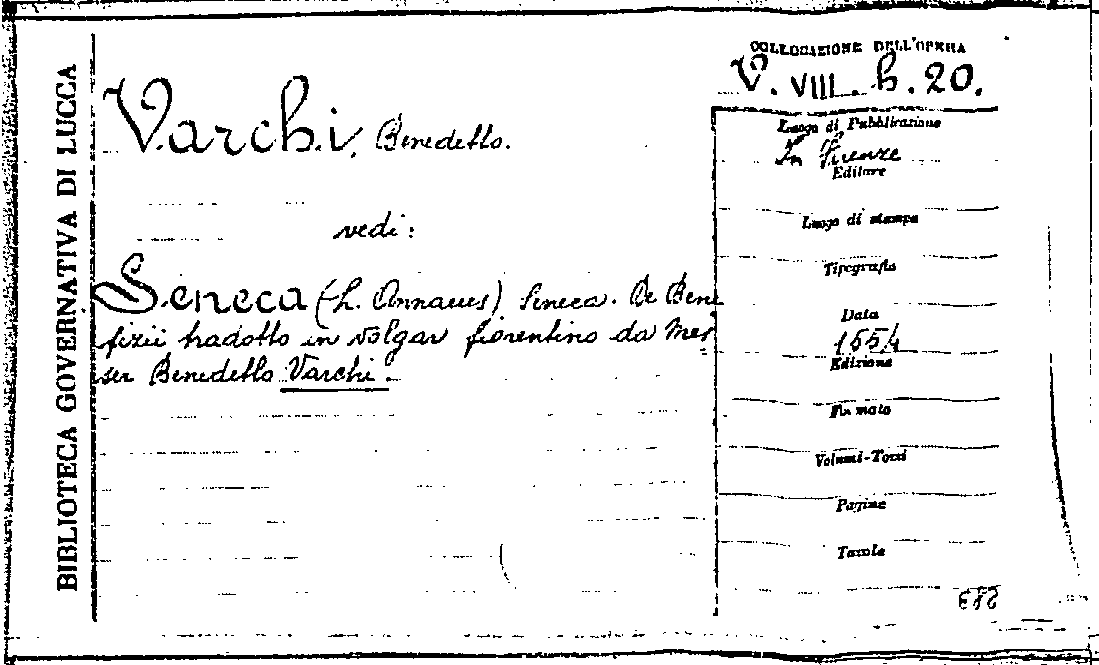 BIBLIOTECA GOVERNATIVA DI LUCCA
Varchi, Benedetto.
vedi:
Seneca (L. Annaeus) Seneca. De Bene
fizii tradotto in volgar fiorentino da Mes
ser Benedetto Varchi.
COLLOCAZIONE DELL'OPERA
V. VIII. h. 20.
Luogo di Pubblicazione
In Firenze
Editore
Luogo di stampa
Tipografo
Data
1554
Edizione
Formato
Volumi-Tomi
Pagine
Tavole